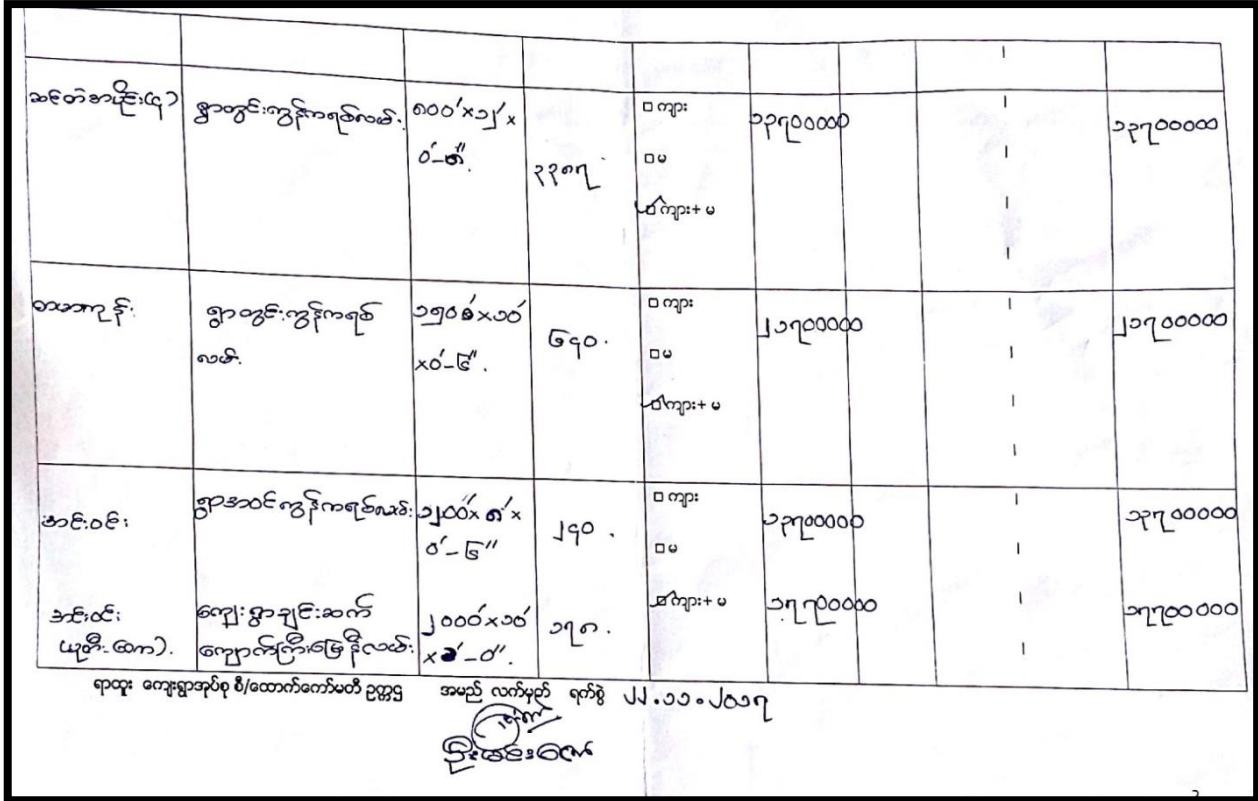 ဆင်တဲအပိုင်း(၄) ရွာတွင်းကွန်ကရစ်လမ်း ၈၀၀′×၁၂′× ၀′_၈″. ၃၃၈၇ □ ကျား □ မ ☑ ကျား+ မ ၁၃၇၀၀၀၀၀ ၁၃၇၀၀၀၀၀
ရွာတွင်းကွန်ကရစ် လမ်း. ၁၅၀၀′×၁၀′ ×၀′_၆″. ၆၄၀. □ ကျား □ မ ☑ ကျား+ မ ၂၁၇၀၀၀၀၀ ၂၁၇၀၀၀၀၀
အင်းဝင်း ရွာအဝင်ကွန်ကရစ်လမ်း ၁၂၀၀′× ၈′× ၀′_၆″ ၂၄၀. □ ကျား □ မ ☑ ကျား+ မ ၁၃၇၀၀၀၀၀ ၁၃၇၀၀၀၀၀
အင်းဝင်း ကျေးရွာချင်းဆက် ကျောက်ကြီးမြေနီလမ်း ၂၀၀၀′×၁၀′ ၁၇၈. ၁၇၇၀၀၀၀၀ ၁၇၇၀၀၀၀၀
ရာထူး ကျေးရွာအုပ်စု စီ/ထောက်ကော်မတီ ဥက္ကဌ အမည် လက်မှတ် ရက်စွဲ ၂၂.၁၁.၂၀၁၇